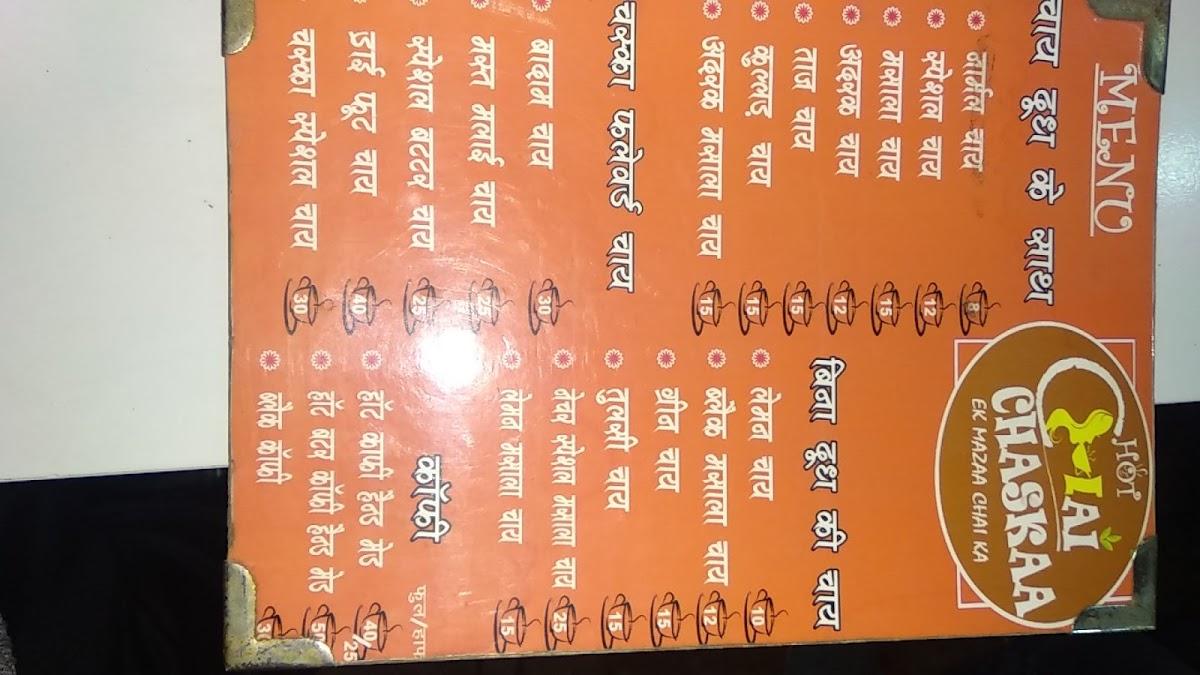 MENU
HOT
CHAI
CHASKAA
EK MAZAA CHAI KA
चाय दूध के साथ
नार्मल चाय 8
स्पेशल चाय 12
मसाला चाय 15
अदरक चाय 12
ताज चाय 15
कुल्लड़ चाय 15
अदरक मसाला चाय 15
चस्का फ्लेवर्ड चाय
बादाम चाय 30
मस्त मलाई चाय 25
स्पेशल बटर चाय 25
ड्राई फ्रूट चाय 40
चस्का स्पेशल चाय 30
बिना दूध की चाय
लेमन चाय 10
ब्लैक मसाला चाय 12
ग्रीन चाय 15
तुलसी चाय 15
स्पेशल मसाला चाय 25
लेमन मसाला चाय 15
कॉफी
फूल/हाफ
हॉट काफी हैंड मेड 40/25
हॉट बटर कॉफी हैंड मेड
ब्लेक कॉफी